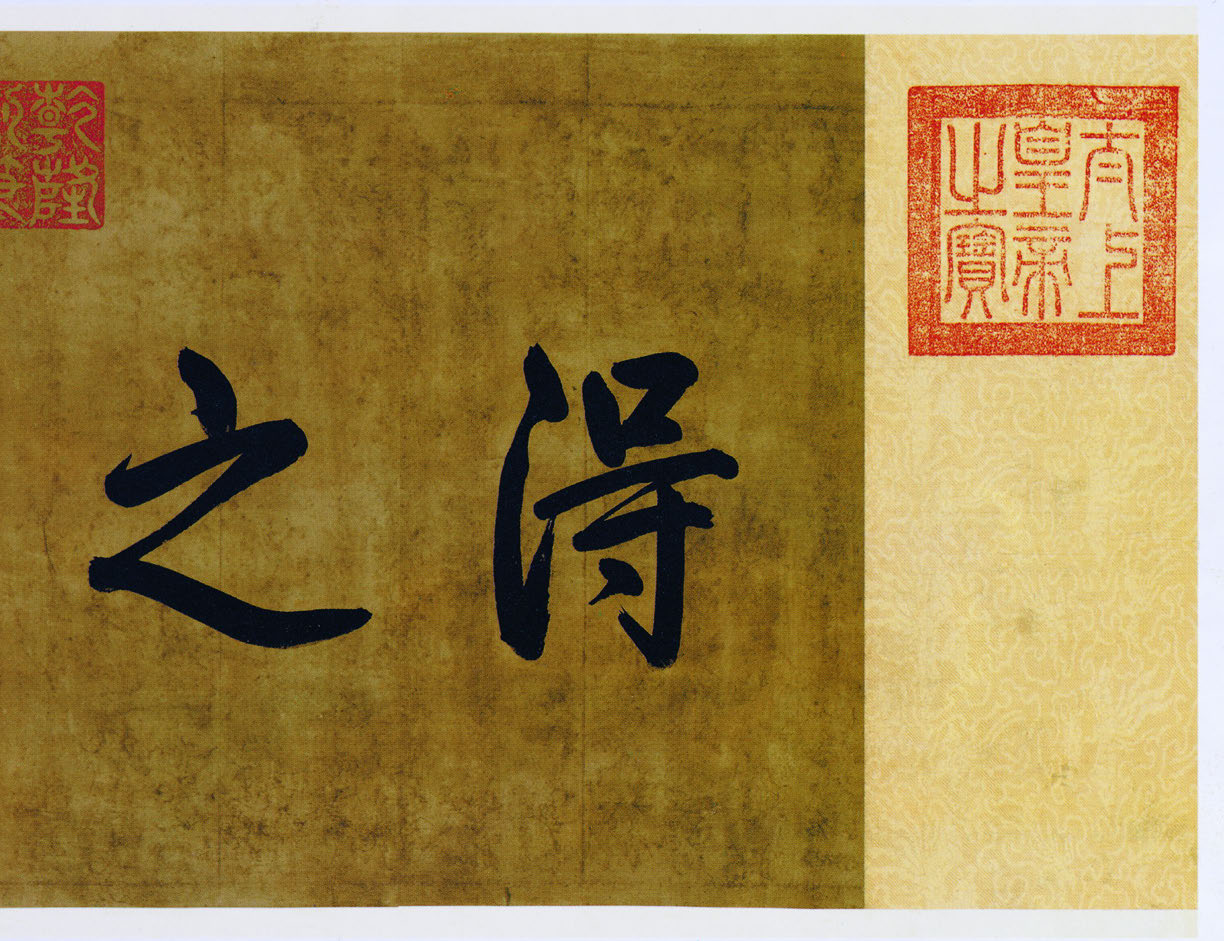 太上
皇帝
之寶
得之
乾隆